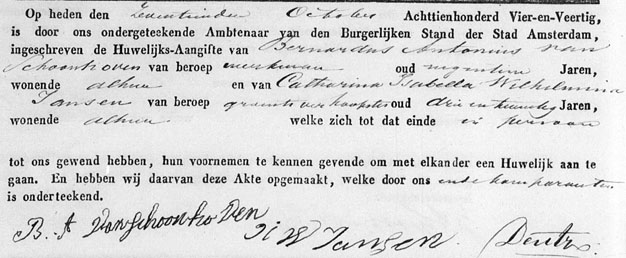 Op heden den Zeventienden October Achttienhonderd Vier-en-Veertig,
is door ons ondergeteekende Ambtenaar van den Burgerlijken Stand der Stad Amsterdam,
ingeschreven de Huwelijks-Aangifte van Bernardus Antonius van
Schoonhoven van beroep werkman oud negentien Jaren,
wonende alhier en van Catharina Isabella Wilhelmina
Jansen van beroep groente verkoopster oud drie en twintig Jaren,
wonende alhier. welke zich tot dat einde in persoon
tot ons gewend hebben, hun voornemen te kennen gevende om met elkander een Huwelijk aan te
gaan. En hebben wij daarvan deze Akte opgemaakt, welke door ons en de komparanten
is onderteekend.
B. A Van Schoonhoven
W Jansen.